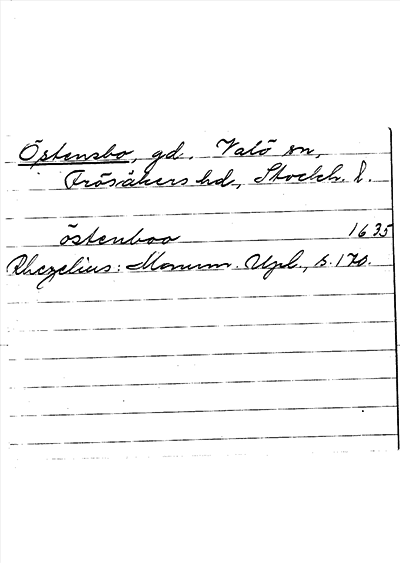 Östensbo, gd. Valö sn,
Frösåkers hd., Stockh. l.
östenboo 1635
Rhezelius: Monum. Upl., s. 170.